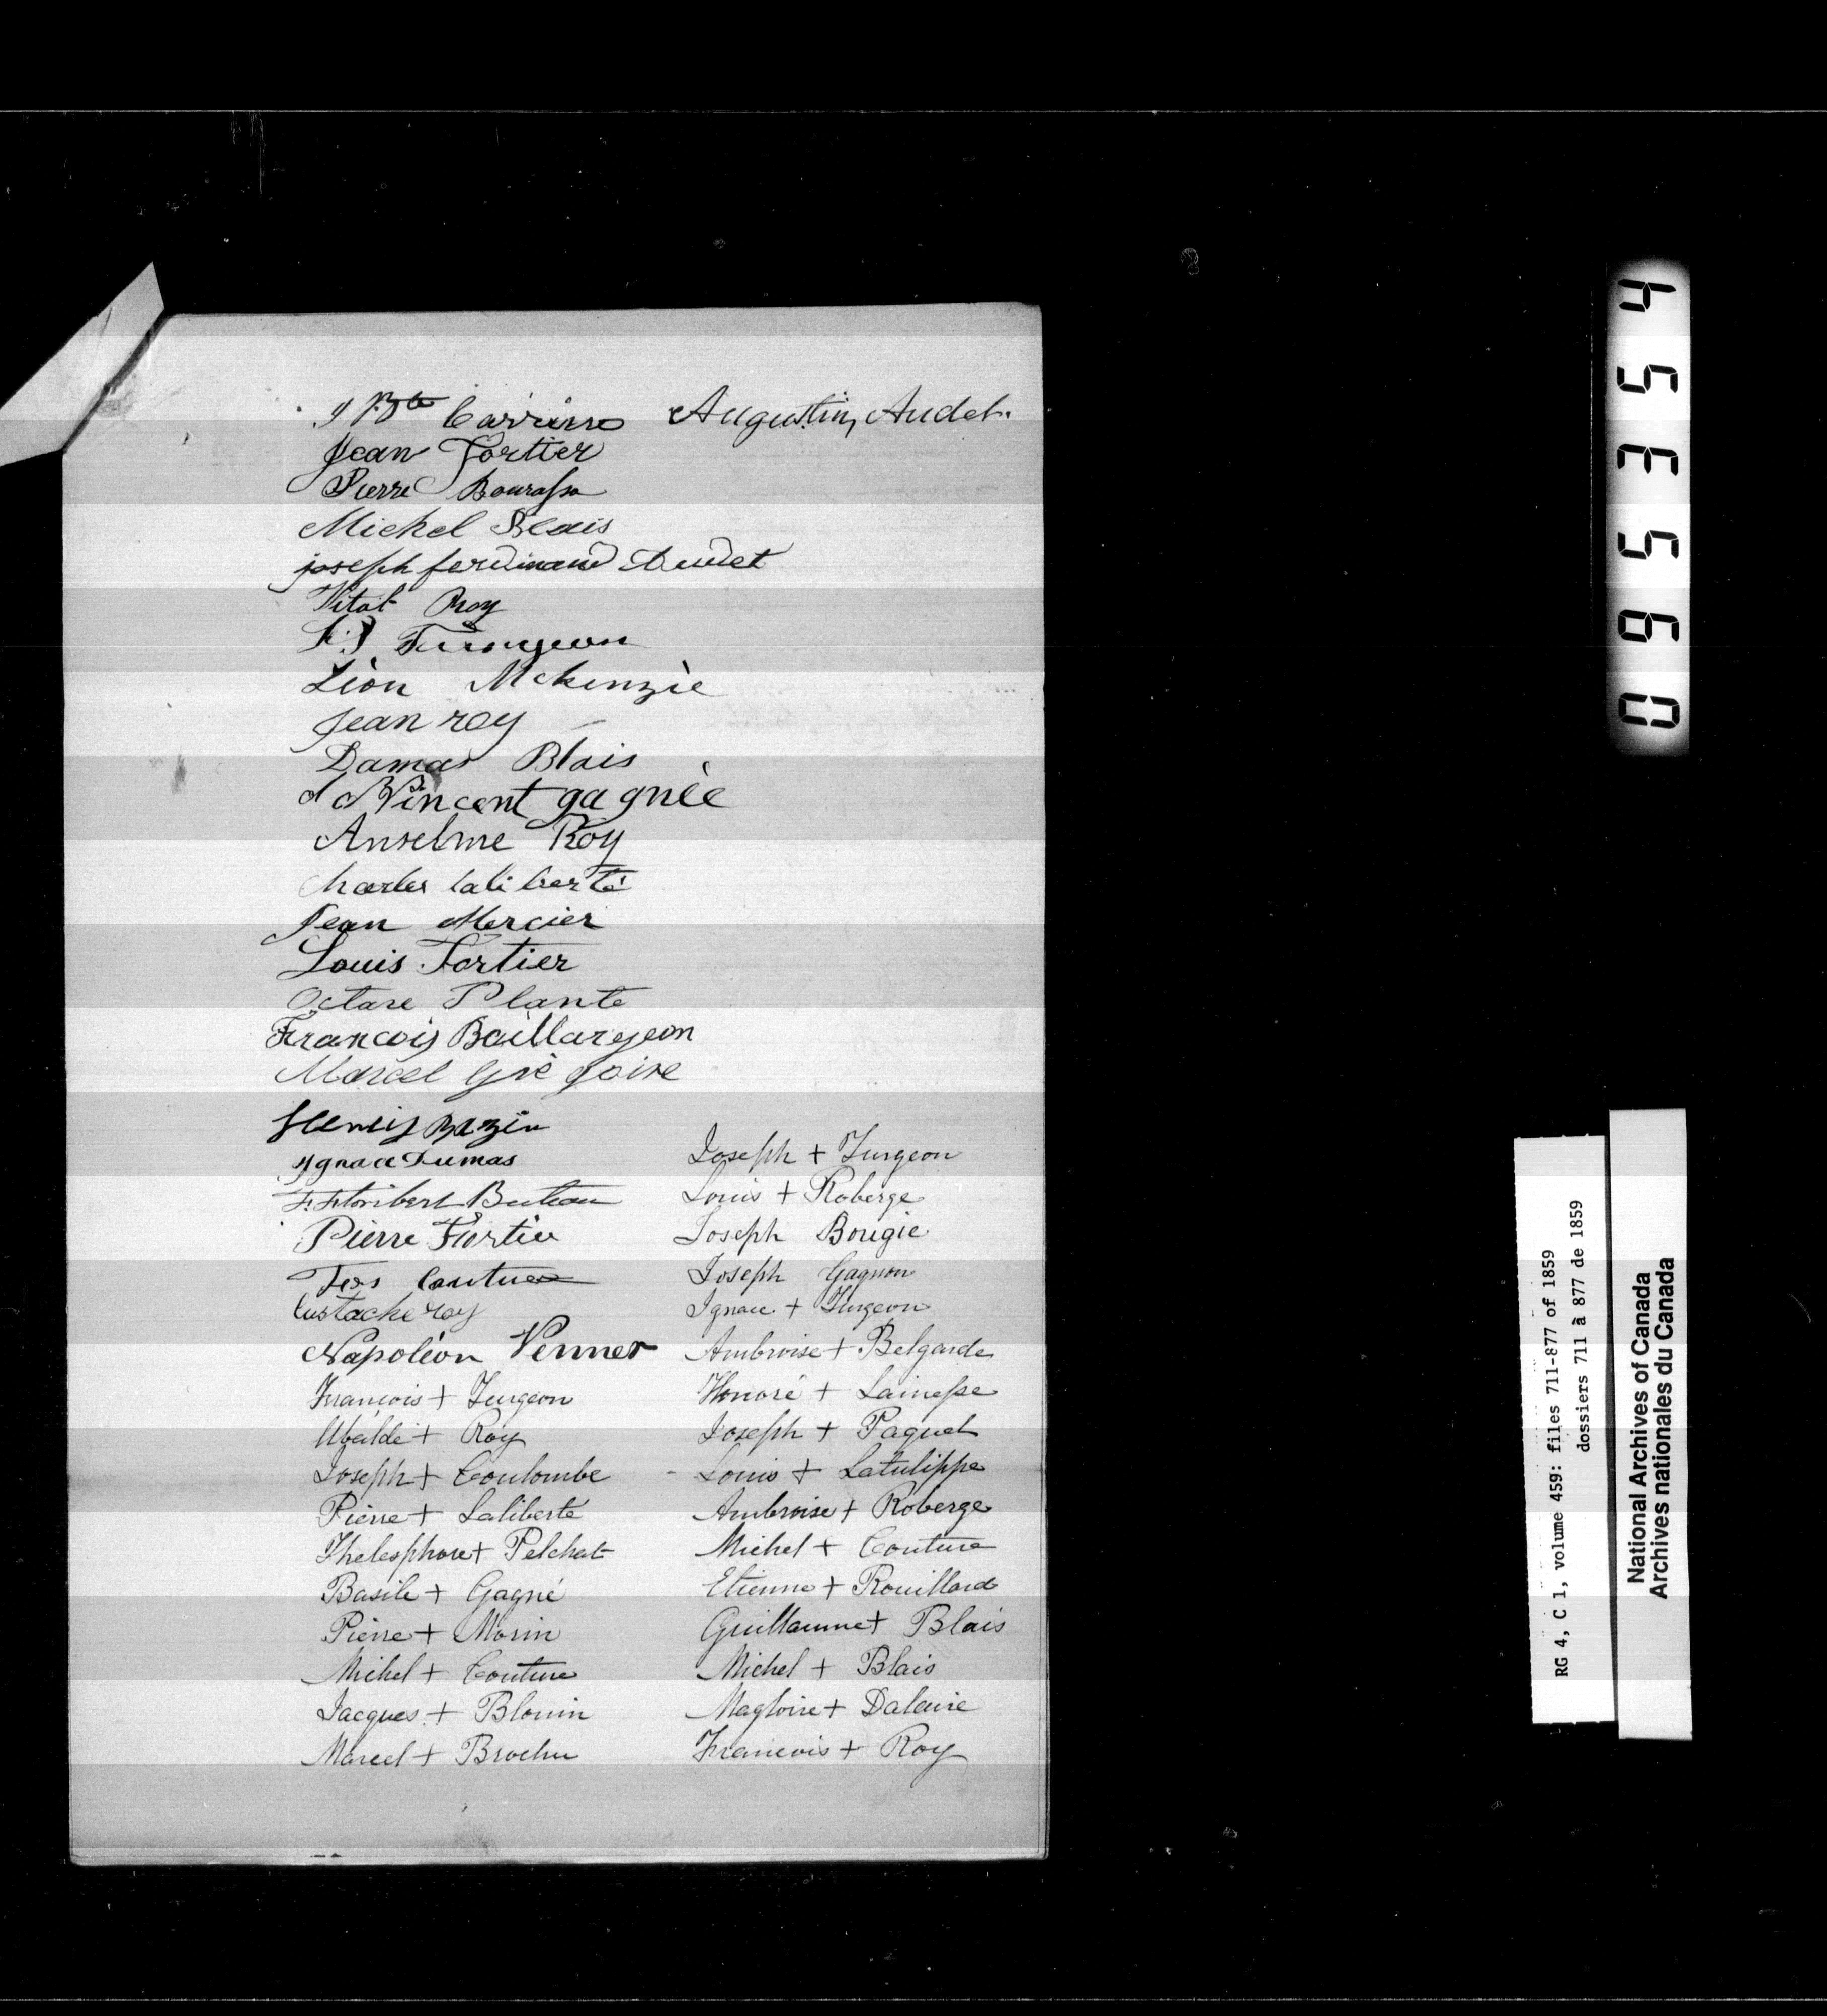 J Bte Carrier
Augustin Audet.
Jean Fortier
Pierre Bourassa
Michel Blais
joseph ferdinand Audet
Vital Roy
Turngeon
Lèon Mckenziè
Jean roy
Damas Blais
Vincent gagnèe
Anselme Roy
Charles laliberté
Jean Mercier
Louis Fortier
Octave Plante
Francois Baillargeon
Marcel Grè goire
Henris Bazin
Ygnace Dumas
F. Floribert Buteau
Pierre Fortier
Frs Couture
Eustache roy
Napolèon Venner
François + Turgeon
Ubalde + Roy
Joseph + Coulombe
Pierre + Laliberté
Thelesphore + Pelchat
Basile + Gagné
Pierre + Morin
Michel + Couture
Jacques + Blouin
Marcel + Brochu
Joseph + Turgeon
Louis + Roberge
Joseph Bougie
Joseph Gagnon
Ignace + Turgeon
Ambroise + Belgarde
Honoré + Lainesse
Joseph + Paquet
Louis + Latulippe
Ambroise + Roberge
Michel + Couture
Etienne + Rouillard
Guillaume + Blais
Michel + Blais
Magloire + Dalaire
Francois + Roy
095354
RG 4, C 1, volume 459: files 711-877 of 1859
dossiers 711 à 877 de 1859
National Archives of Canada
Archives nationales du Canada